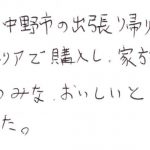 中野市の出張り帰り
リアで購入し、家族
のみな、おいしいと
た。